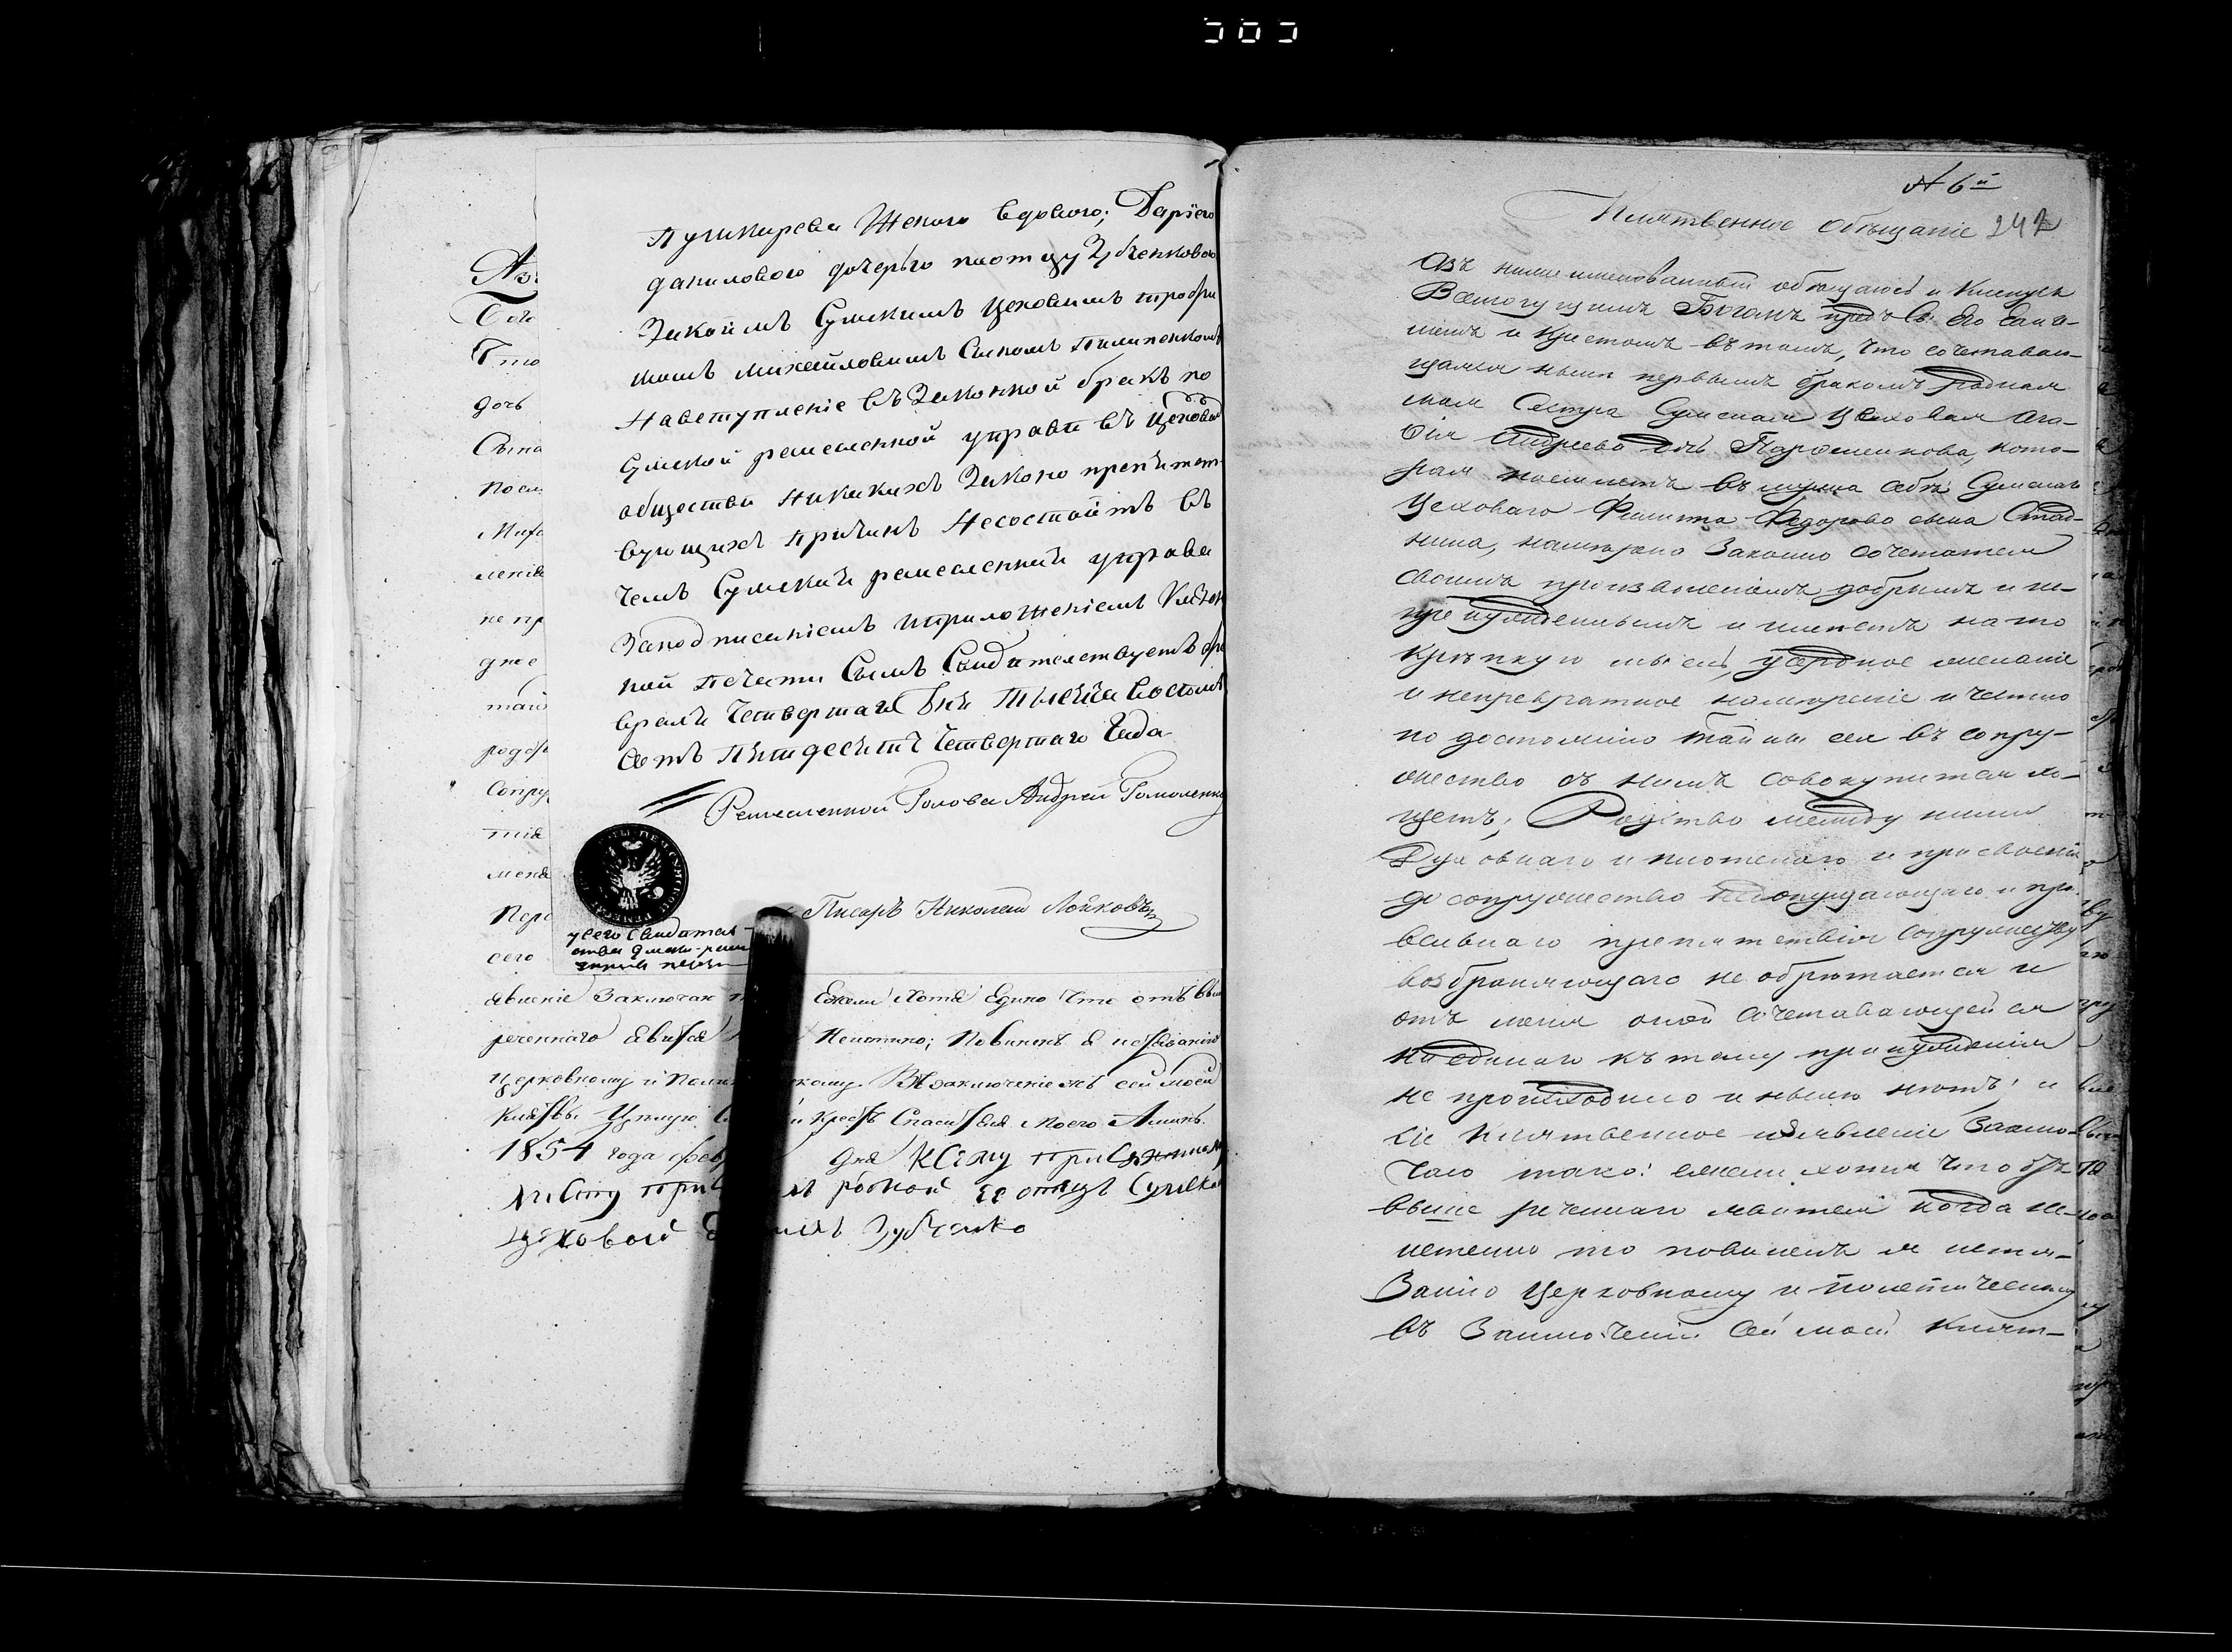 Пушкарева Женого вдовою; Дарїею
даниловою дочерью поотцу Зубченковою
Закоймъ Сумскимъ Цеховимъ трофи
момъ михайловимъ Сыномъ Пилипенкомъ
Навступленіе въ Законной бракъ по
Сумской ремесленной управи въ Цеховом
обществи Никакихъ Законо препятст
вующихъ Причинъ Несостоитъ въ
чемъ Сумская ремесленная управа
Заподписаніемъ иприложеніемъ Казен
ной Печати Симъ Свидетелствуетъ фе
враля Четвертаго Дня Тысяча восемъ
сотъ Пятидесятъ Четвертаго Года
Ремесленной Голова Андрей Гомоленко
Писаръ Николай Лойковъ
у сего Свидетел-
Аз
Бого
Что
дочь
Сына
после
Миха
ленія
не пр
дное
тай
родс
Сопру
тія
меня
Пере
сего
явленіе Заключаю Ежели Хотя Едино Что отъ выш
реченнаго Явится Неистино; Повиненъ я истязанію
Церковному и Поли скому. Въ заключеніе жъ сей моей
Клятвы Цѣлую С и Крестъ Спасителя Моего Аминь.
1854 года фев дня КСему Присяжному
листу при лъ родной ее отецъ Сумской
цеховой Зубченко
№ 6й
Клятвенное Обѣщаніе 242
Азъ нижеименованный обѣщаюсь и Кленуся
Всемогущимъ Богомъ предъ Св. Его Еванге-
ліемъ и Крестомъ въ томъ, что сочетаваю-
щаяся нынѣ первымъ бракомъ родная
моя Сестра Сумская Цеховая Ага-
фія Андреева дочь Пархоменкова, кото-
рая поемлетъ въ мужа себѣ Сумскаго
Цеховаго Филиппа Федорова сына Стад-
ника, намѣрено Законно сочетатся
своимъ произволеніемъ добримъ и не-
принужденнымъ и имѣетъ на то
Крѣпкую мысль, усердное желаніе
и непревратное намѣреніе и честно
по достоянію тайны сея въ супру-
жество съ нимъ совокупитися хо-
щетъ; Родство между ними
Духовнаго и плотскаго и присвоенія
до сопружества недопущающаго и пра-
вилнаго препятствія Сопружеству
возбраняющаго не обрѣтается и
отъ меня оной Сочетавающейся
ни единаго къ тому принужденія
не происходило и нынѣ нѣтъ; и
сіе Клятвенное изъявленіе Заклю-
чаю тако: ежели хотя что отъ
выше реченнаго явится когда не-
истенно то повиненъ я истя-
Занію Церковному и Политическому
въ Заключеніи Сей моей Клят-